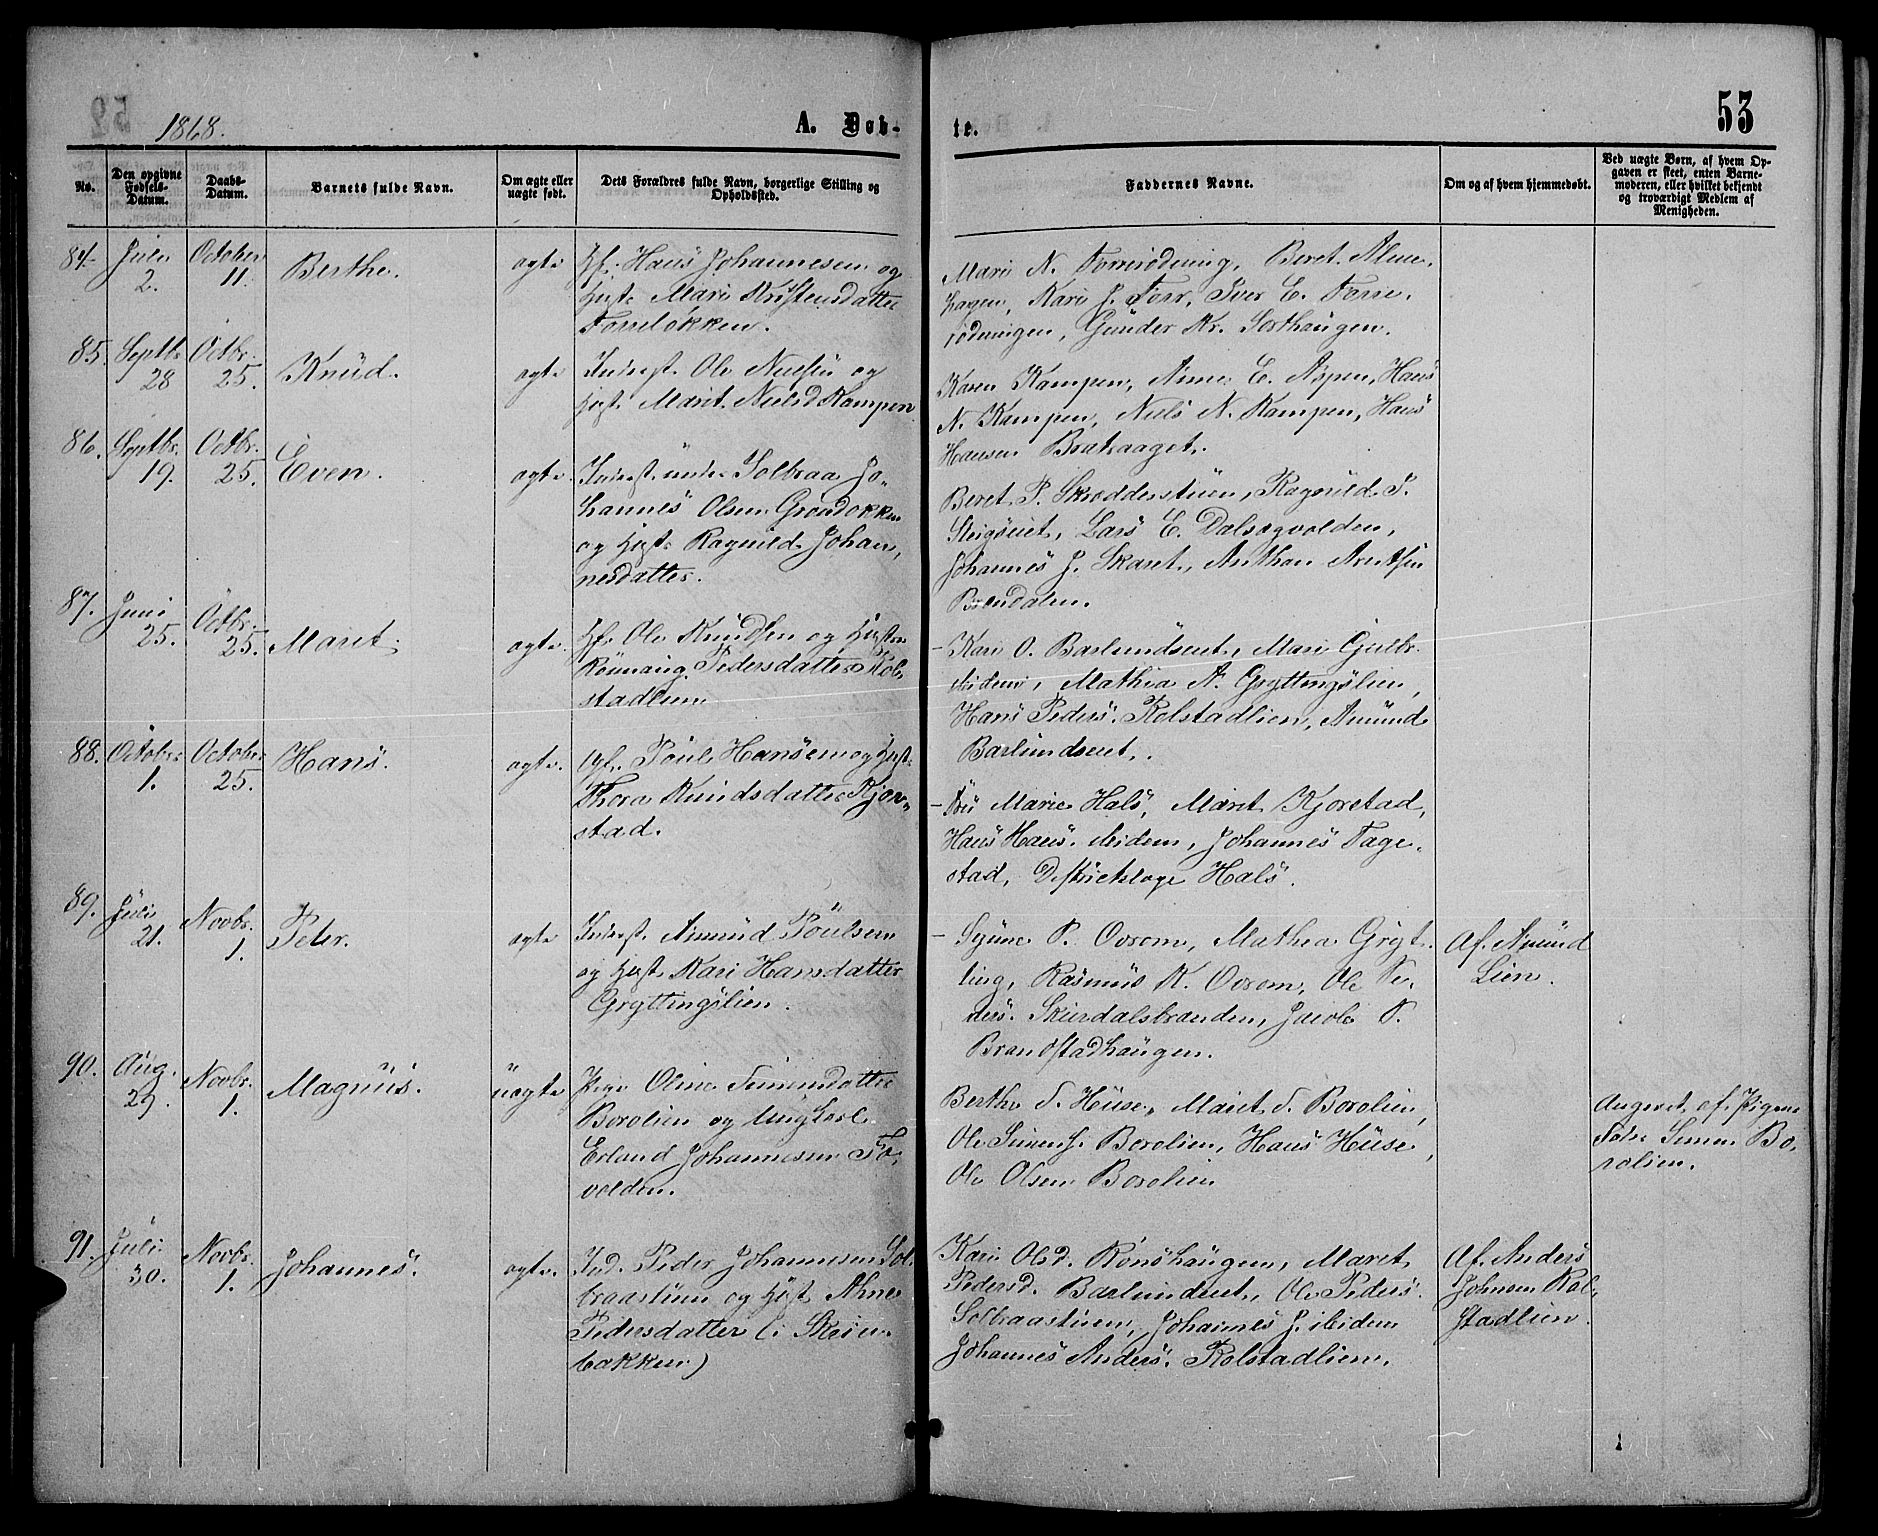 1868.
A. Døb-
te.
53
No.
Den opgivne Fødsels-Datum.
Daabs-Datum.
Barnets fulde Navn.
Om ægte eller uægte født.
Dets Forældres fulde Navn, borgerlige Stilling og Opholdssted.
Faddernes Navne.
Om og af hvem hjemmedøbt.
Ved uægte Børn, af hvem Op-
gaven er skeet, enten Barne-
moderen, eller hvilket bekjendt
og troværdigt Medlem af
Menigheden.
84.
Juli
2.
October
11.
Berthe.
ægte
Gf. Hans Johannesen og
Hust. Mari Kristensdatter
Forreløkken.
Mari N. Forrerødning, Beret Alme-
hagen, Kari J. Forr, Iver E. Forre-
rødningen, Gunder Kr. Sorthaugen.
85.
Septbr.
28
Octbr.
25.
Knud.
ægte
Inderst. Ole Nielsen og
Hust. Marit Nielsd Kampen
Karen Kampen, Anne E. Aspen, Hans
N. Kampen, Niels N. Kampen, Hans
Hansen Brataaget.
86.
Septbr.
19.
Octbr.
25.
Even.
ægte
Inderst under Solbraa Jo-
hannes Olsen Grøndokken
og Hust. Ragnild Johan-
nesdatter.
Beret P. Skrædderstuen, Ragnild T.
Lars E. Dalsægvolden,
Johannes J. Skaret, Anthon Arntsen
Brændalen.
87.
Juni
25.
Octbr.
25.
Maret.
ægte
Gf. Ole Knudsen og Hustru
Rønnaug Pedersdatter Kol-
stadlien
- Kari O. Barlundseet, Mari Gulbr.
ibidem, Mathia A. Gryttingslien,
Hans Peders. Kolstadlien, Amund
Barlundseet.
88.
October
1.
October
25.
Hans.
ægte.
Gf. Poul Hansen og Hust.
Thora Knudsdatter Kjør-
stad.
- Fru Marie Hals, Marit Kjørstad,
Hans Hans. ibidem, Johannes Fage-
stad, Distriktslæge Hals.
89.
Juli
21.
Novbr.
1.
Peter.
ægte
Inderst. Amund Poulsen
og Hust. Kari Hansdatter
Gryttingslien.
- Synne P. Ovrom, Mathea Gryt-
ting, Rasmus K. Ovrom, Ole Pe-
ders. Skurdalsbrænden, Jacob P.
Brandstadhaugen.
Af Amund
Lien.
90.
Aug.
29.
Novbr.
1.
Magnus.
uægte
Pige Oline Simensdatter
Borolien og Ungkarl
Erland Johannesen Fo-
volden.
Berthe S. Huse, Maret S. Borolien,
Ole Simens. Borolien, Hans Huse,
Ole Olsen Borolien
Angivet af Pigens
Fader Simen Bo-
rolien.
91.
Juli
30.
Novbr.
1.
Johannes.
ægte.
Ind. Peder Johannesen Sol-
braastuen og Hust. Ahne
Pedersdatter (i Skøien-
bakken)
Kari Olsd. Rønshaugen, Maret
Pedersd. Barlundseet, Ole Peders.
Solbraastuen, Johannes J. ibidem
Johannes Anders. Kolstadlien.
Af Anders
Johnsen Kol-
stadlien.